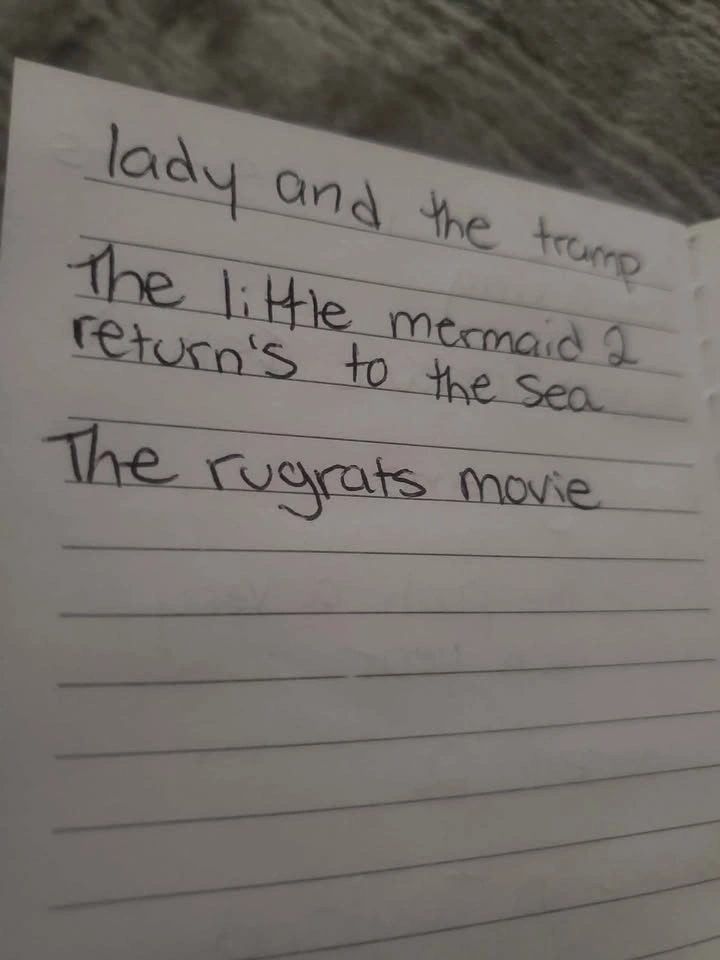 lady and the tramp
The little mermaid 2
return's to the sea
The rugrats movie